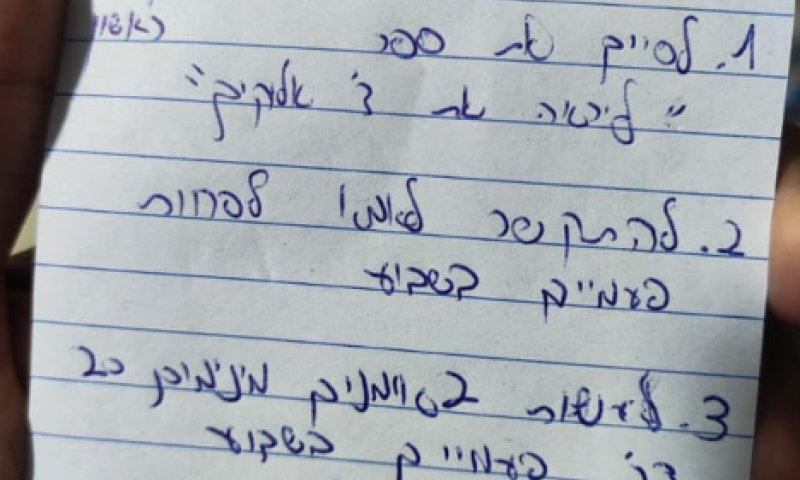 ראשון
1. לסיים את ספר
"ליראה את ד' אלוקיך"
2. להתקשר לאמא! לפחות
פעמיים בשבוע
3. לעשות 2 אימונים מינימום 20
דק' פעמיים בשבוע